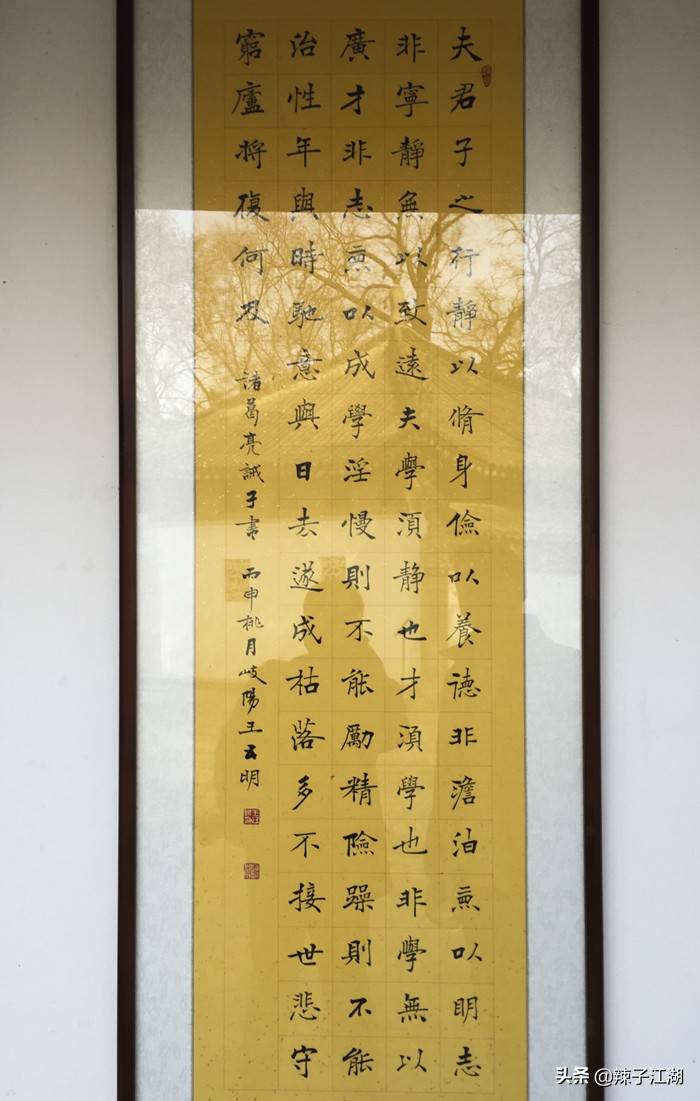 夫君子之行靜以脩身儉以養德非澹泊無以明志
非寧靜無以致遠夫學須靜也才須學也非學無以
廣才非志無以成學淫慢則不能勵精險躁則不能
治性年與時馳意與日去遂成枯落多不接世悲守
窮廬將復何及
諸葛亮誡子書 丙申桃月岐陽王云明
头条 @辣子江湖